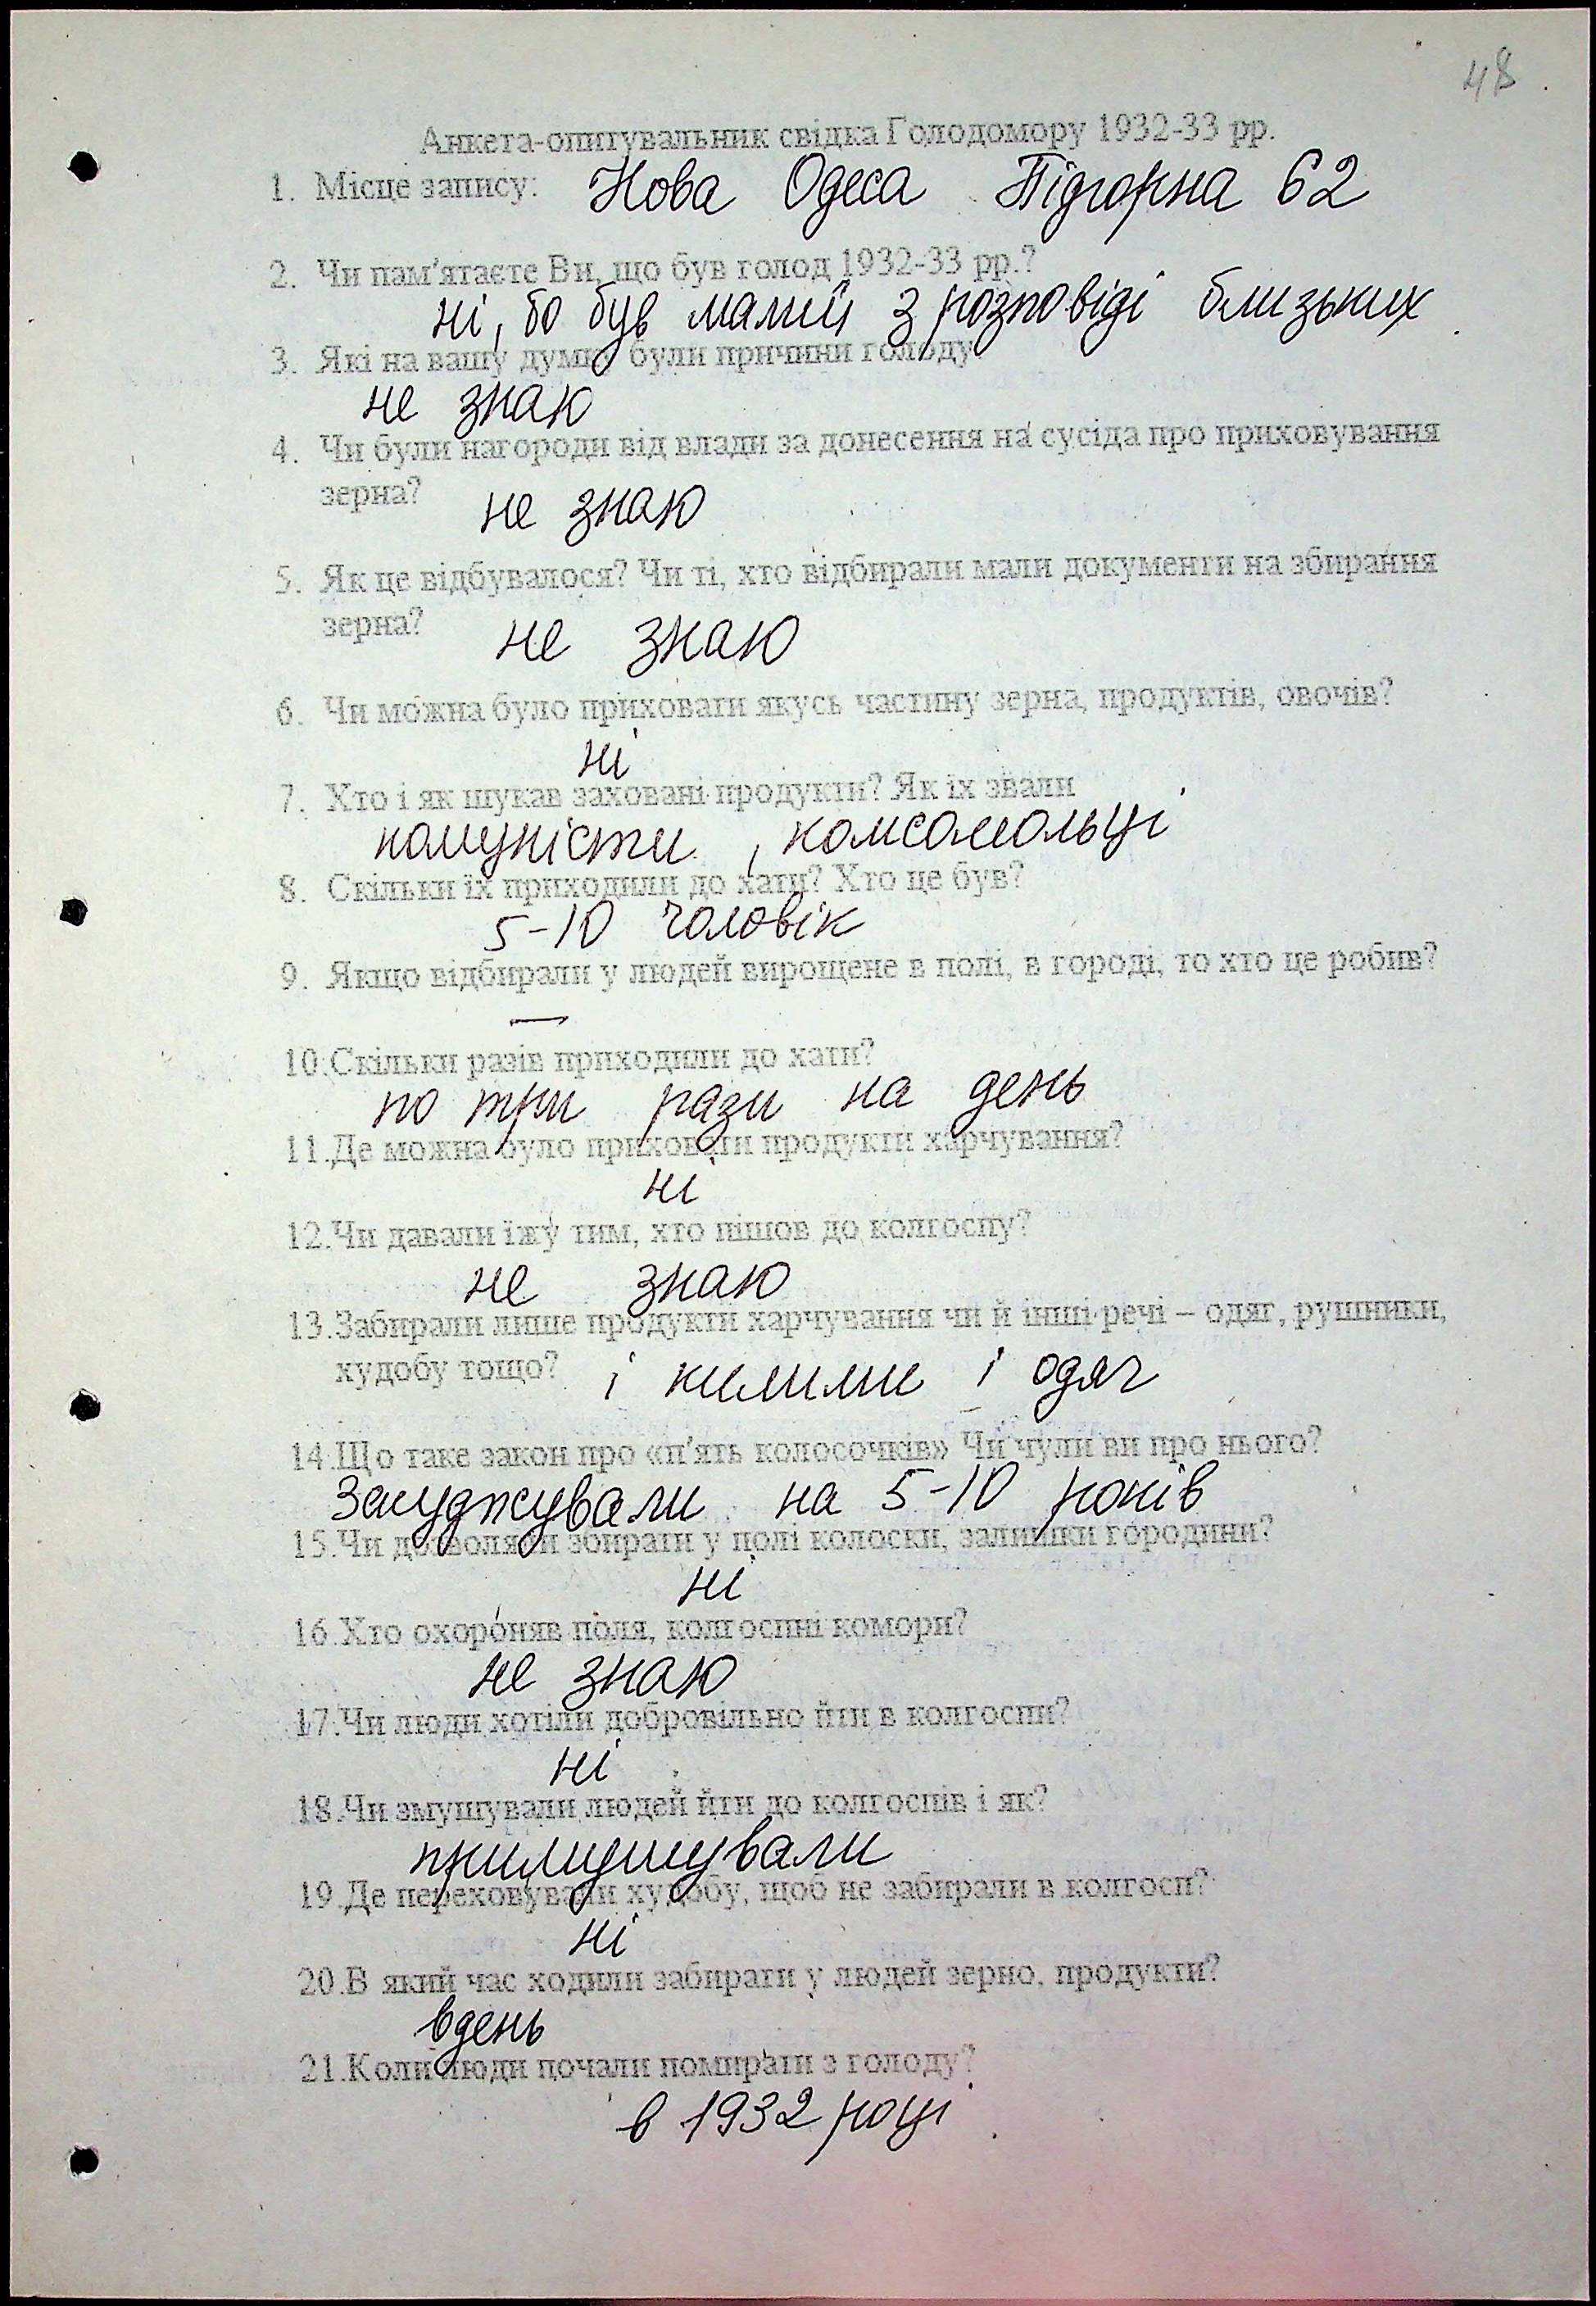 48
Анкета-опитувальник свідка Голодомору 1932-33 рр.
1. Місце запису: Нова Одеса Підгорна 62
2. Чи пам'ятаєте Ви, що був голод 1932-33 рр.?
ні, бо був малий з розповіді близьких
3. Які на вашу думку були причини голоду
не знаю
4. Чи були нагороди від влади за донесення на сусіда про приховування
зерна? не знаю
5. Як це відбувалося? Чи ті, хто відбирали мали документи на збирання
зерна? не знаю
6. Чи можна було приховати якусь частину зерна, продуктів, овочів?
ні
7. Хто і як шукав заховані продукти? Як їх звали
комуністи, комсомольці
8. Скільки їх приходили до хати? Хто це був?
5-10 чоловік
9. Якщо відбирали у людей вирощене в полі, в городі, то хто це робив?
—
10. Скільки разів приходили до хати?
по три рази на день
11. Де можна було приховати продукти харчування?
ні
12. Чи давали їжу тим, хто пішов до колгоспу?
не знаю
13. Забирали лише продукти харчування чи й інші речі – одяг, рушники,
худобу тощо? і килими і одяг
14. Що таке закон про «п'ять колосочків» Чи чули ви про нього?
Засуджували на 5-10 років
15. Чи дозволяли збирати у полі колоски, залишки городини?
ні
16. Хто охороняв поля, колгоспні комори?
не знаю
17. Чи люди хотіли добровільно йти в колгоспи?
ні
18. Чи змушували людей йти до колгоспів і як?
примушували
19. Де переховували худобу, щоб не забирали в колгосп?
ні
20. В який час ходили забирати у людей зерно, продукти?
вдень
21. Коли люди почали помирати з голоду?
в 1932 році